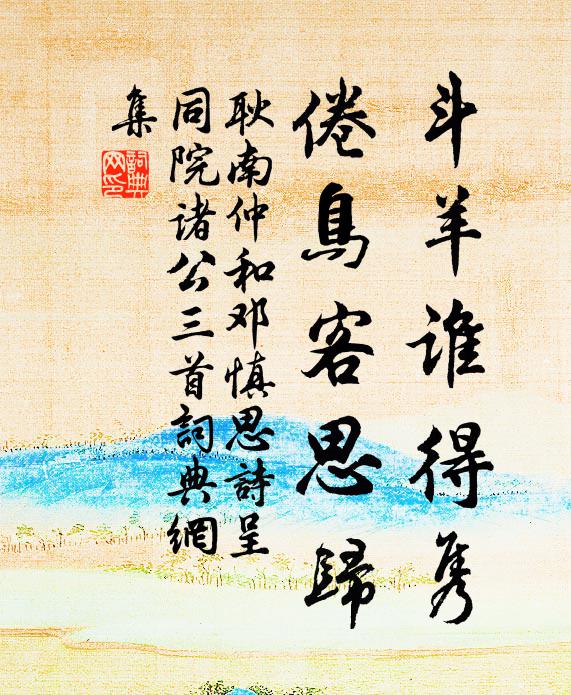 斗羊谁得隽
倦鳥客思歸
耿南仲和邓慎思詩呈
同院诸公三首詞典網
集
詞典
网印